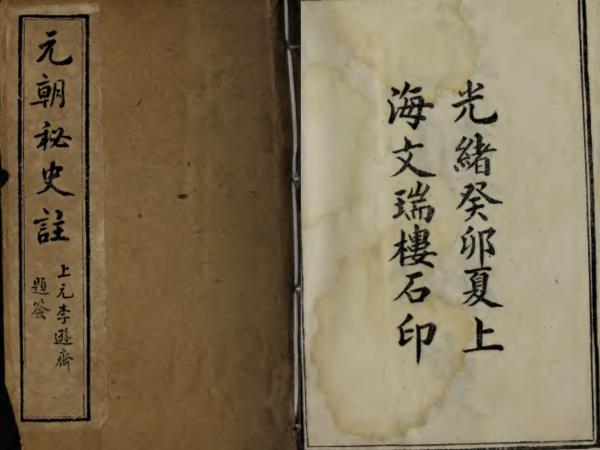 元朝秘史註
上元李遯齋
題簽
光緒癸卯夏上
海文瑞樓石印